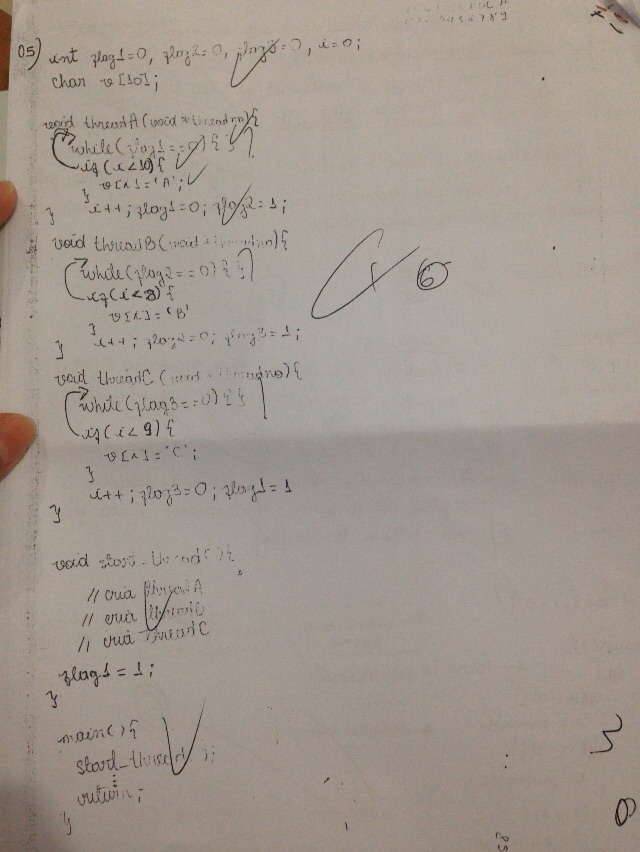 05) int flag1=0, flag2=0, flag3=0, i=0;
char v[10];
void threadA(void *threadno){
while(flag1==0){}
if(i<10){
v[i]='A';
}
i++; flag1=0; flag2=1;
}
void threadB(void *threadno){
while(flag2==0){}
if(i<8){
v[i]='B'
}
i++; flag2=0; flag3=1;
}
void threadC(void *threadno){
while(flag3==0){}
if(i<9){
v[i]='C';
}
i++; flag3=0; flag1=1
}
void start_thread(){
// cria threadA
// cria threadB
// cria threadC
flag1=1;
}
main(){
start_thread();
return;
}
6